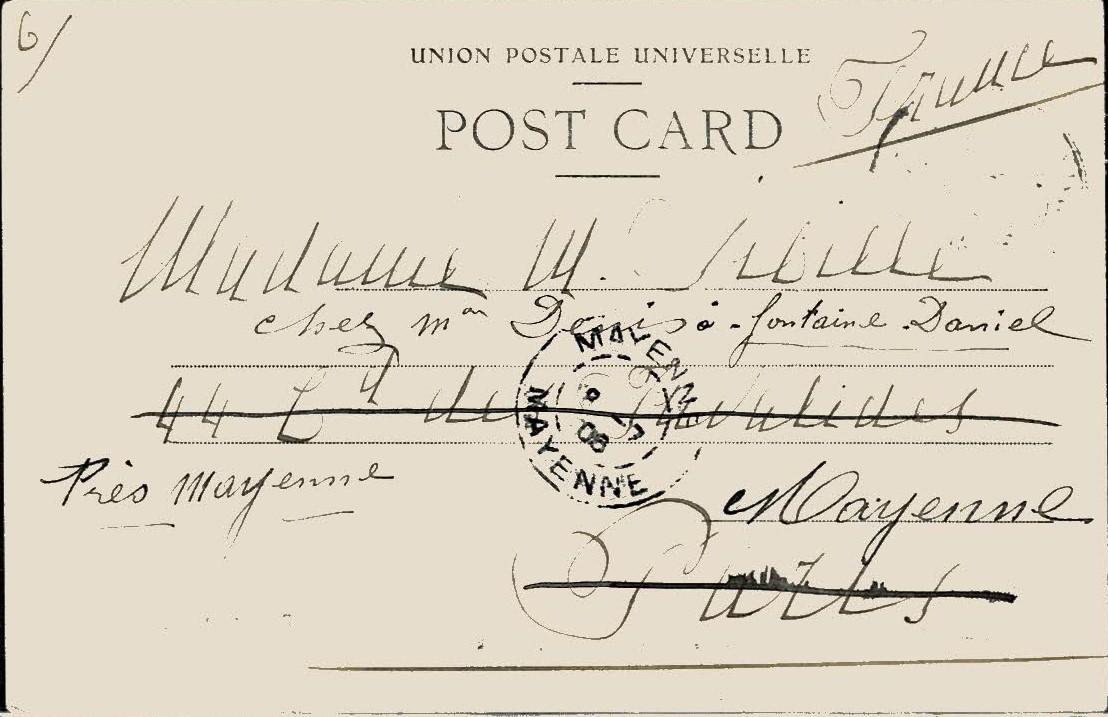 6/
UNION POSTALE UNIVERSELLE
France
POST CARD
Madame M.
chez Mᵐᵉ Denis à fontaine Daniel
44 Bᵈ des Invalides
MAYENNE
9 -7
08
MAYENNE
Près Mayenne
Mayenne
Paris